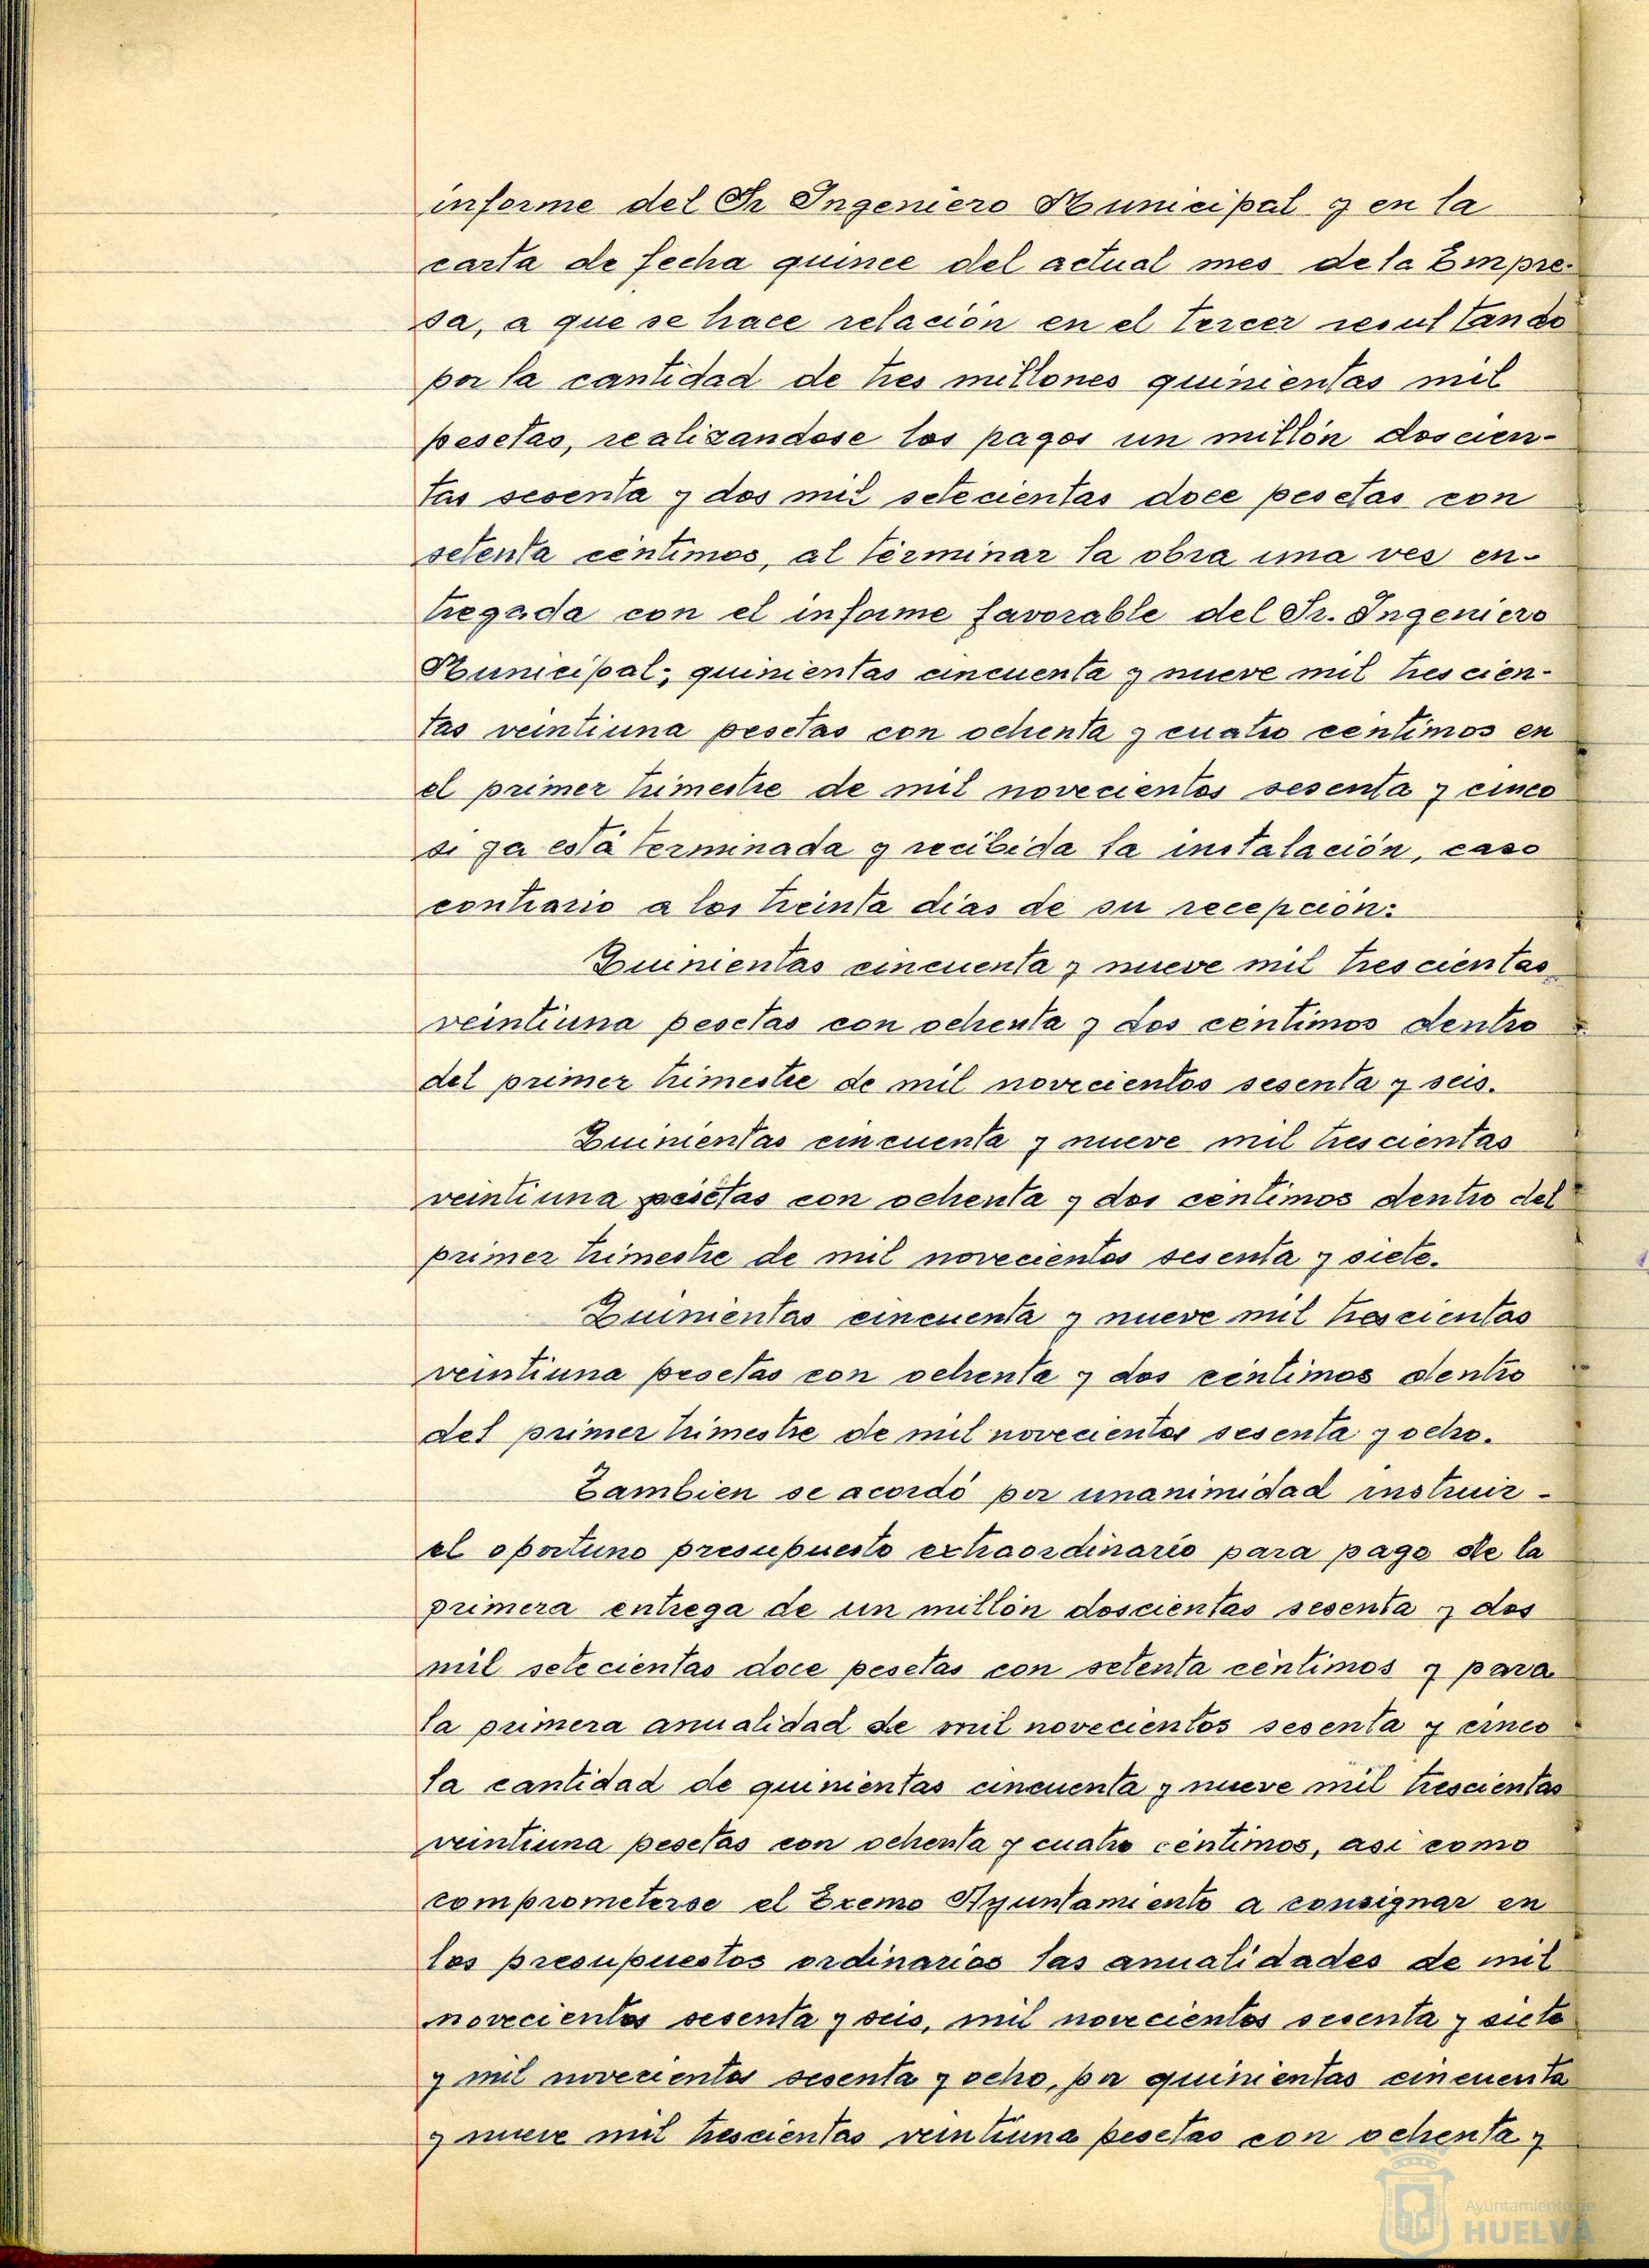 informe del Sr Ingeniero Municipal y en la
carta de fecha quince del actual mes de la Empre-
sa, a que se hace relación en el tercer resultando
por la cantidad de tres millones quinientas mil
pesetas, realizandose los pagos un millón doscien-
tas sesenta y dos mil setecientas doce pesetas con
setenta céntimos, al términar la obra una ves en-
tregada con el informe favorable del Sr. Ingeniero
Municipal; quinientas cincuenta y nueve mil trescien-
tas veintiuna pesetas con ochenta y cuatro centimos en
el primer trimestre de mil novecientos sesenta y cinco
si ya está terminada y recibida la instalación, caso
contrario a los treinta dias de su recepción:
Quinientas cincuenta y nueve mil trescientas
veintiuna pesetas con ochenta y dos céntimos dentro
del primer trimestre de mil novecientos sesenta y seis.
Quinientas cincuenta y nueve mil trescientas
veintiuna pesetas con ochenta y dos centimos dentro del
primer trimestre de mil novecientos sesenta y siete.
Quinientas cincuenta y nueve mil trescientas
veintiuna pesetas con ochenta y dos céntimos dentro
del primer trimestre de mil novecientos sesenta y ocho.
Tambien se acordó por unanimidad instruir-
el oportuno presupuesto extraordinario para pago de la
primera entrega de un millón doscientas sesenta y dos
mil setecientas doce pesetas con setenta céntimos y para
la primera anualidad de mil novecientos sesenta y cinco
la cantidad de quinientas cincuenta y nueve mil trescientas
veintiuna pesetas con ochenta y cuatro céntimos, asi como
comprometerse el Excmo Ayuntamiento a consignar en
los presupuestos ordinarios las anualidades de mil
novecientos sesenta y seis, mil novecientos sesenta y siete
y mil novecientos sesenta y ocho, por quinientas cincuenta
y nueve mil trescientas veintiuna pesetas con ochenta y
Ayuntamiento de
HUELVA